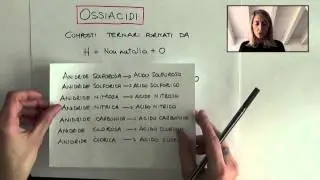 OSSIACIDI
COMPOSTI TERNARI FORMATI DA
H + NON METALLO + O
ANIDRIDE SOLFOROSA → ACIDO SOLFOROSO
ANIDRIDE SOLFORICA → ACIDO SOLFORICO
ANIDRIDE NITROSA → ACIDO NITROSO
ANIDRIDE NITRICA → ACIDO NITRICO
ANIDRIDE CARBONICA → ACIDO CARBONICO
ANIDRIDE CLOROSA → ACIDO
ANIDRIDE CLORICA → ACIDO